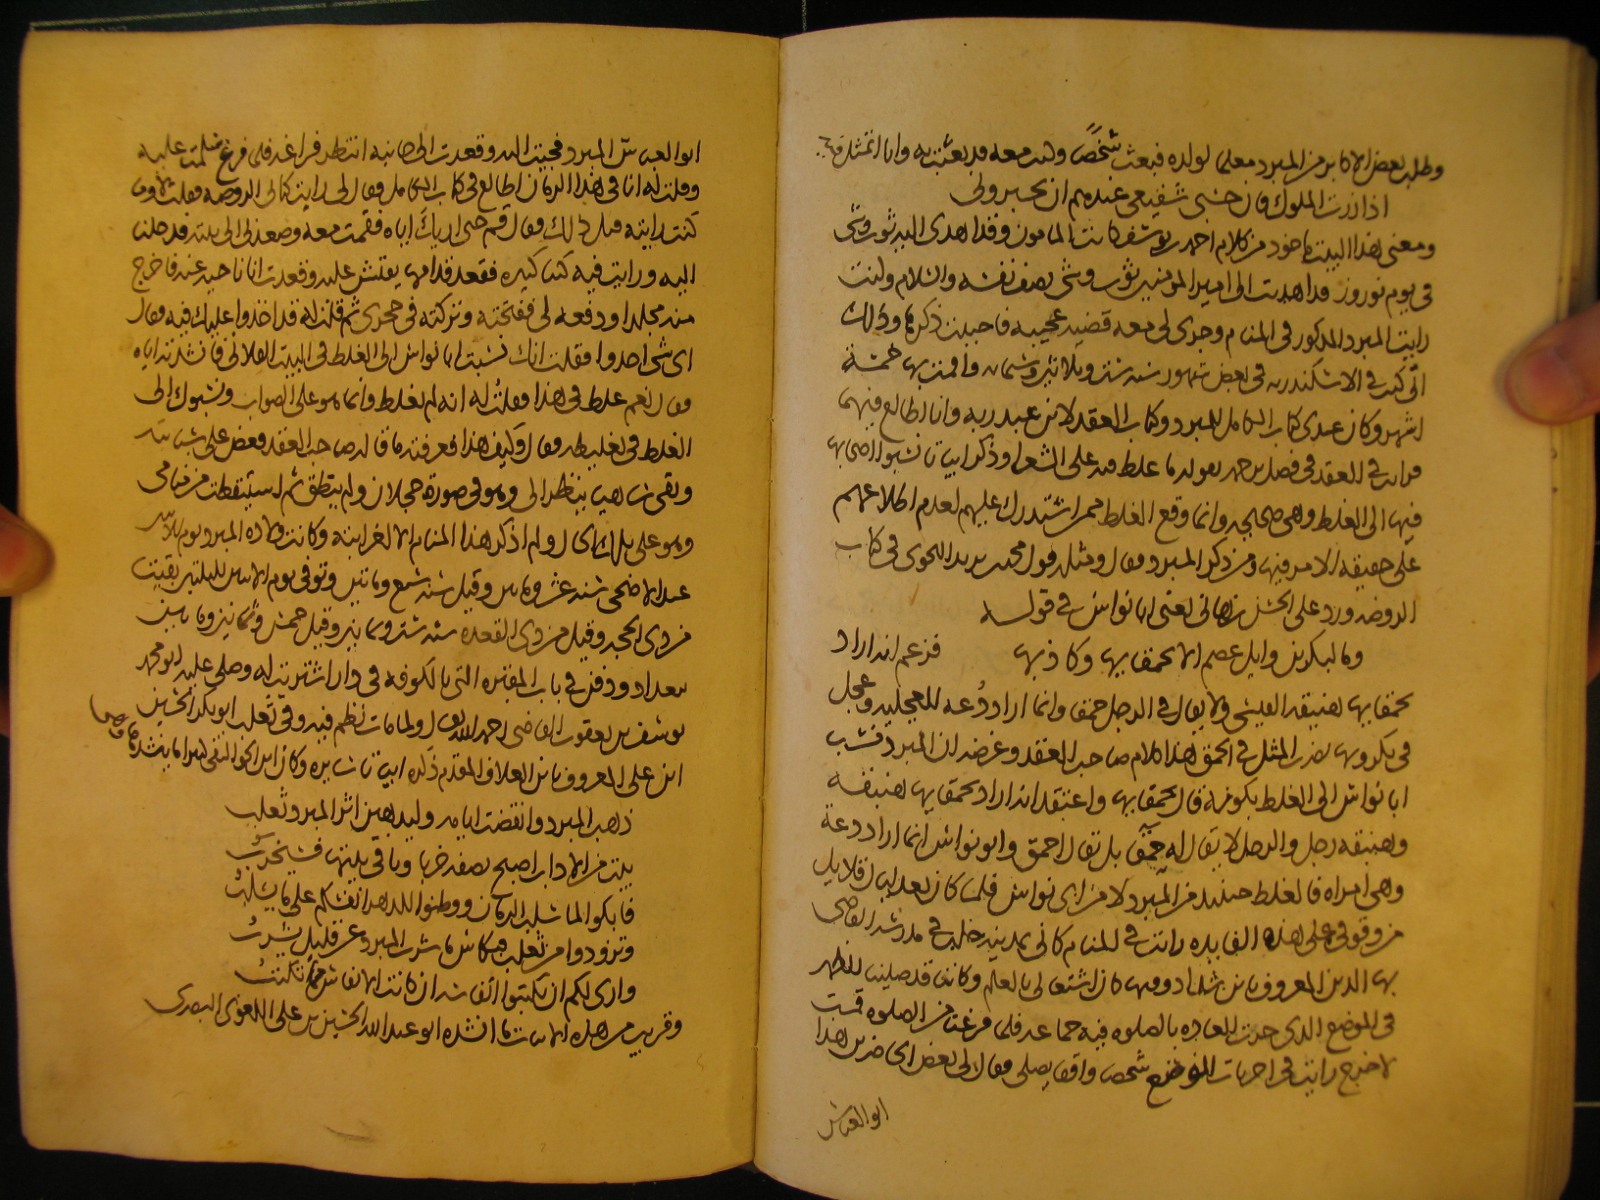 وطلب بعض الاكابر من المبرد معلما لولده فبعث شخصا وكتب معه قد بعثت به وانا اتمثل فيه
اذا زرت الملوك فان حسبي شفيعي عندهم ان يخبروني
ومعنى هذا البيت ماخوذ من كلام احمد بن يوسف كاتب المامون وقد اهدى اليه ثوب وشي
في يوم نوروز قد اهديت الى امير المومنين ثوب وشي يصف نفسه والسلام وكنت
رايت المبرد المذكور في المنام وجرى لي معه قضية عجيبة فاحببت ذكرها وذلك
اني كنت في الاسكندرية في بعض شهور سنة ست وثلاثين وستمائة واقمت بها خمسة
اشهر وكان عندي كتاب الكامل للمبرد وكتاب العقد لابن عبد ربه وانا اطالع فيهما
فرايت في العقد في فصل ترجمه بقوله ما غلط فيه على الشعرا وذكر ابياتا نسبوا اصحابها
فيها الى الغلط وهي صحيحة وانما وقع الغلط ممن استدرك عليهم لعدم اطلاعهم
على حقيقة الامر فيها ومن ذكر المبرد فقال ومثله قول محمد بن يزيد النحوي في كتاب
الروضة ورد على الحسن بن هاني يعني ابا نواس في قوله
وما لبكر بن وايل عصم الا بحمقايها وكاذبها فزعم انه اراد
بحمقايها هبنقة القيسي ولا يقال في الرجل حمقا وانما اراد دُغه العجلية وعجل
في بكر وبها يضرب المثل في الحمق هذا كلام صاحب العقد وغرضه ان المبرد نسب
ابا نواس الى الغلط بكونه قال بحمقايها واعتقد انه اراد بحمقايها هبنقة
وهبنقة رجل والرجل لا يقال له حمقا بل يقال احمق وابو نواس انما اراد دغة
وهي امراة فالغلط حينيذ من المبرد لا من ابي نواس فلما كان بعد ليال قلايل
من وقوفي على هذه الفايدة رايت في المنام كاني بمدينة حلب في مدرسة القاضي
بها الدين المعروف بابن شداد وفيها كان اشتغالي بالعلم وكاننا قد صلينا الظهر
في الموضع الذي جرت العادة بالصلوة فيه جماعة فلما فرغنا من الصلوة قمت
لاخرج رايت في اخريات الموضع شخصا واقفا يصلي فقال لي بعض الحاضرين هذا
ابو العباس
ابو العباس المبرد فجيت اليه وقعدت الى جانبه انتظر فراغه فلما فرغ سلمت عليه
وقلت له انا في هذا الزمان اطالع في كتابك الكامل فقال لي رايت كتابي الروضة فقلت لا وما
كنت رايته قبل ذلك فقال قم حتى اريك اياه فقمت معه وصعد لي الى بيته فدخلنا
اليه ورايت فيه كتبا كثيرة فقعد قدامها يفتش عليه وقعدت انا ناحية عنه فاخرج
منه مجلدا ودفعه لي ففتحته وتركته في حجري ثم قلت له قد اخذوا عليك فيه فقال
اي شي اخذوا فقلت انك نسبت ابا نواس الى الغلط في البيت الفلاني فانشدته اياه
فقال نعم غلط في هذا فقلت له انه لم يغلط وانما هو على الصواب ونسبوك الى
الغلط في تغليطه فقال وكيف هذا فعرفته ما قاله صاحب العقد فعض على سبابته
وبقي ساهيا ينظر الي وهو في صورة خجلان ولم ينطق ثم استيقظت من منامي
وهو على تلك الحال ولم اذكر هذا المنام الا لغرابته وكانت ولادة المبرد يوم الاثنين
عيد الاضحى سنة عشر ومايتين وقيل سنة سبع ومايتين وتوفي يوم الاثنين لليلتين بقيتا
من ذي الحجة وقيل من ذي القعدة سنة ست وثمانين وقيل خمس وثمانين ومايتين
ببغداد ودفن في باب المقبرة التي بالكوفة في دار اشتريت له وصلى عليه ابو محمد
يوسف بن يعقوب القاضي رحمه الله تعالى ولما مات نظم فيه وفي ثعلب ابو بكر الحسين
ابن علي المعروف بابن العلاف المقدم ذكره ابياتا سايرة وكان ابن الجواليقي كثيرا ما ينشدها وهي
ذهب المبرد وانقضت ايامه وليذهبن اثر المبرد ثعلب
بيت من الاداب اصبح نصفه خربا وباقي بيتها فسيخرب
فابكوا لما سلب الزمان ووطنوا للدهر انفسكم على ما يسلب
وتزودوا من ثعلب فبكاس ما شرب المبرد عن قليل يشرب
وارى لكم ان تكتبوا انفاسه ان كانت الانفاس مما تكتب
وقريب من هذه الابيات ما انشده ابو عبد الله الحسين بن علي اللغوي البصري